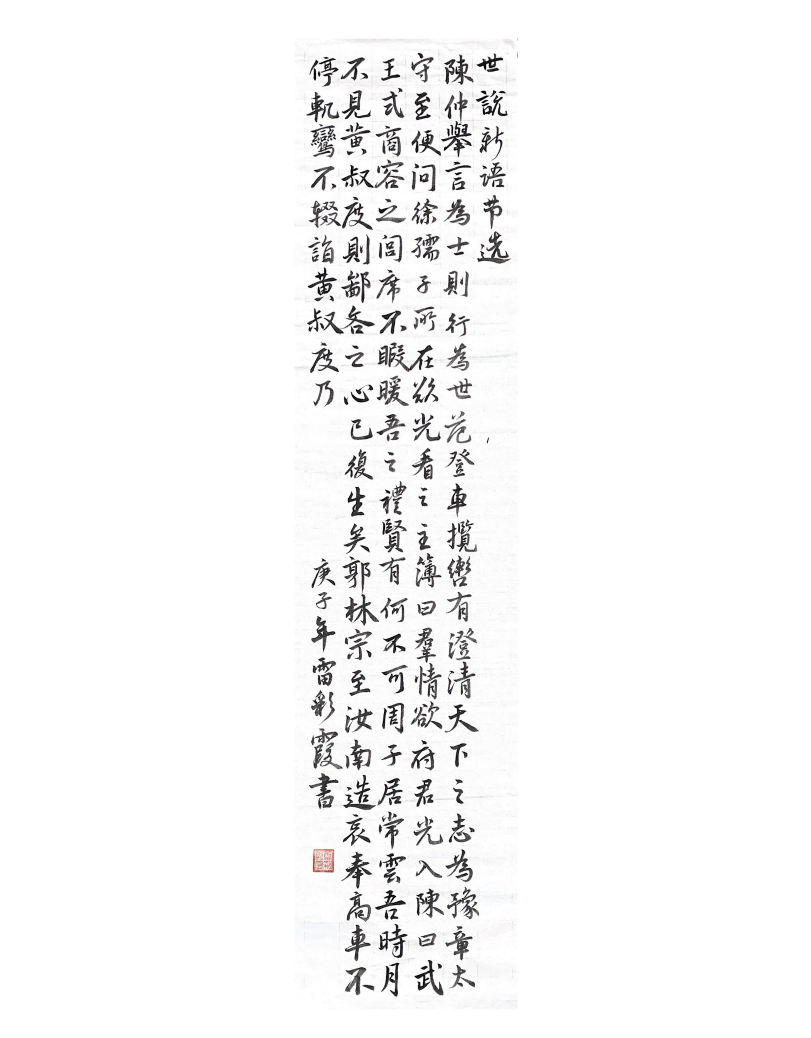 世說新语节选
陳仲舉言為士則行為世范登車攬轡有澄清天下之志為豫章太
守至便问徐孺子所在欲光看之主簿曰羣情欲府君光入陳曰武
王式商容之闾席不暇暖吾之禮賢有何不可周子居常雲吾時月
不見黄叔度則鄙各之心已復生矣郭林宗至汝南造袁奉高車不
停軌鸞不辍詣黄叔度乃
庚子年雷彩霞書